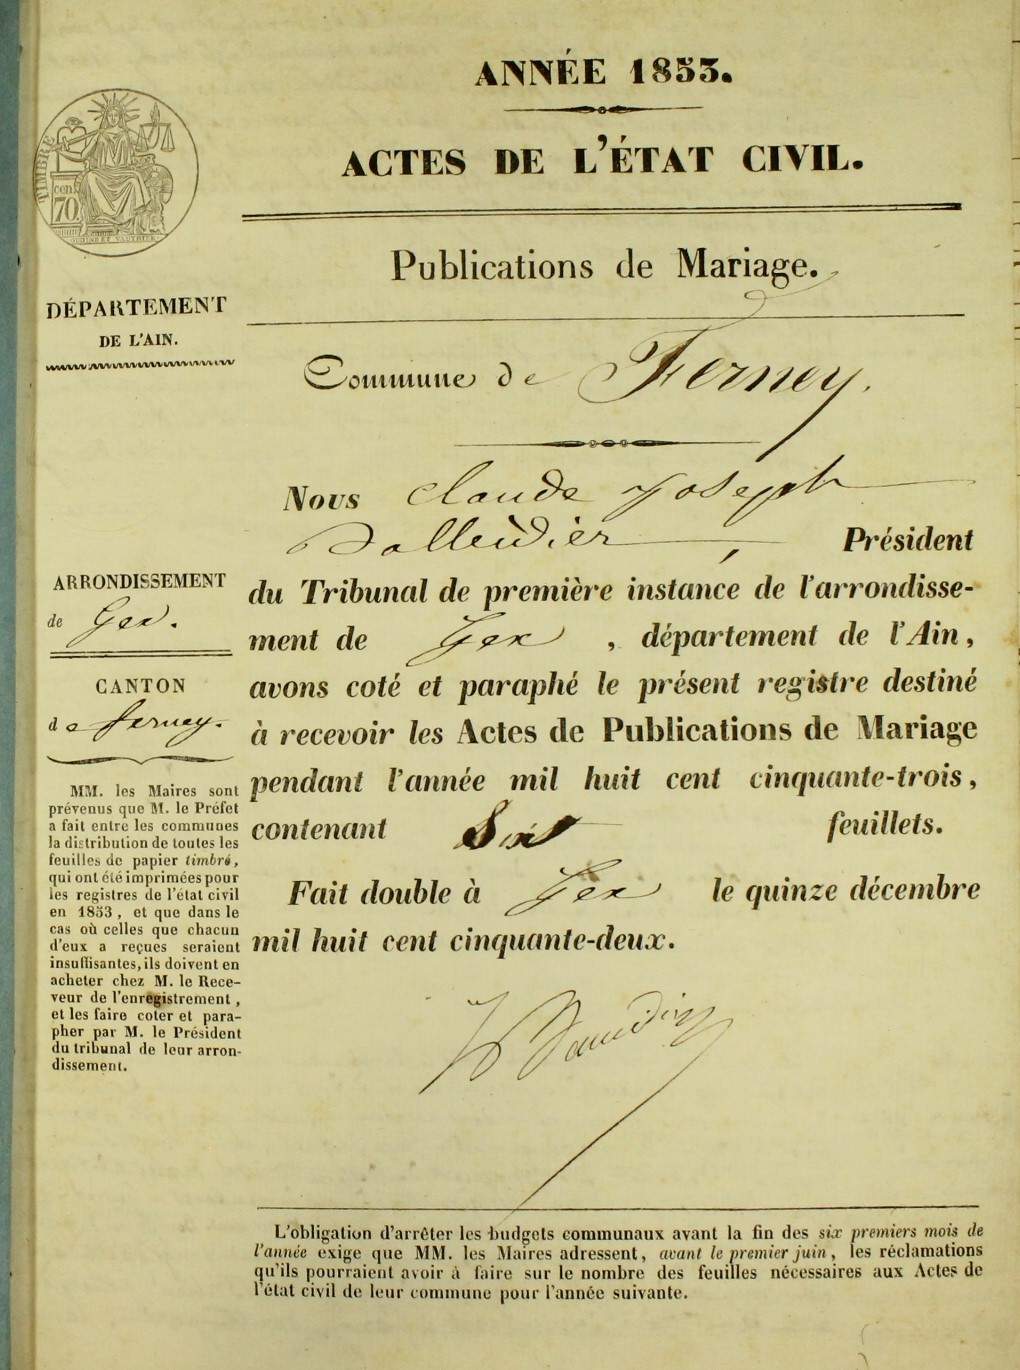 ANNÉE 1853.
ACTES DE L'ÉTAT CIVIL.
TIMBRE
cen.
70
Publications de Mariage.
DÉPARTEMENT
DE L'AIN.
Commune de Ferney.
Nous Claude Joseph
Président
du Tribunal de première instance de l'arrondisse-
ment de Gex, département de l'Ain,
avons coté et paraphé le présent registre destiné
à recevoir les Actes de Publications de Mariage
pendant l'année mil huit cent cinquante-trois,
contenant Six feuillets.
Fait double à Gex le quinze décembre
mil huit cent cinquante-deux.
ARRONDISSEMENT
de Gex.
CANTON
de Ferney.
MM. les Maires sont
prévenus que M. le Préfet
a fait entre les communes
la distribution de toutes les
feuilles de papier timbré,
qui ont été imprimées pour
les registres de l'état civil
en 1853, et que dans le
cas où celles que chacun
d'eux a reçues seraient
insuffisantes, ils doivent en
acheter chez M. le Rece-
veur de l'enregistrement,
et les faire coter et para-
pher par M. le Président
du tribunal de leur arron-
dissement.
L'obligation d'arrêter les budgets communaux avant la fin des six premiers mois de
l'année exige que MM. les Maires adressent, avant le premier juin, les réclamations
qu'ils pourraient avoir à faire sur le nombre des feuilles nécessaires aux Actes de
l'état civil de leur commune pour l'année suivante.